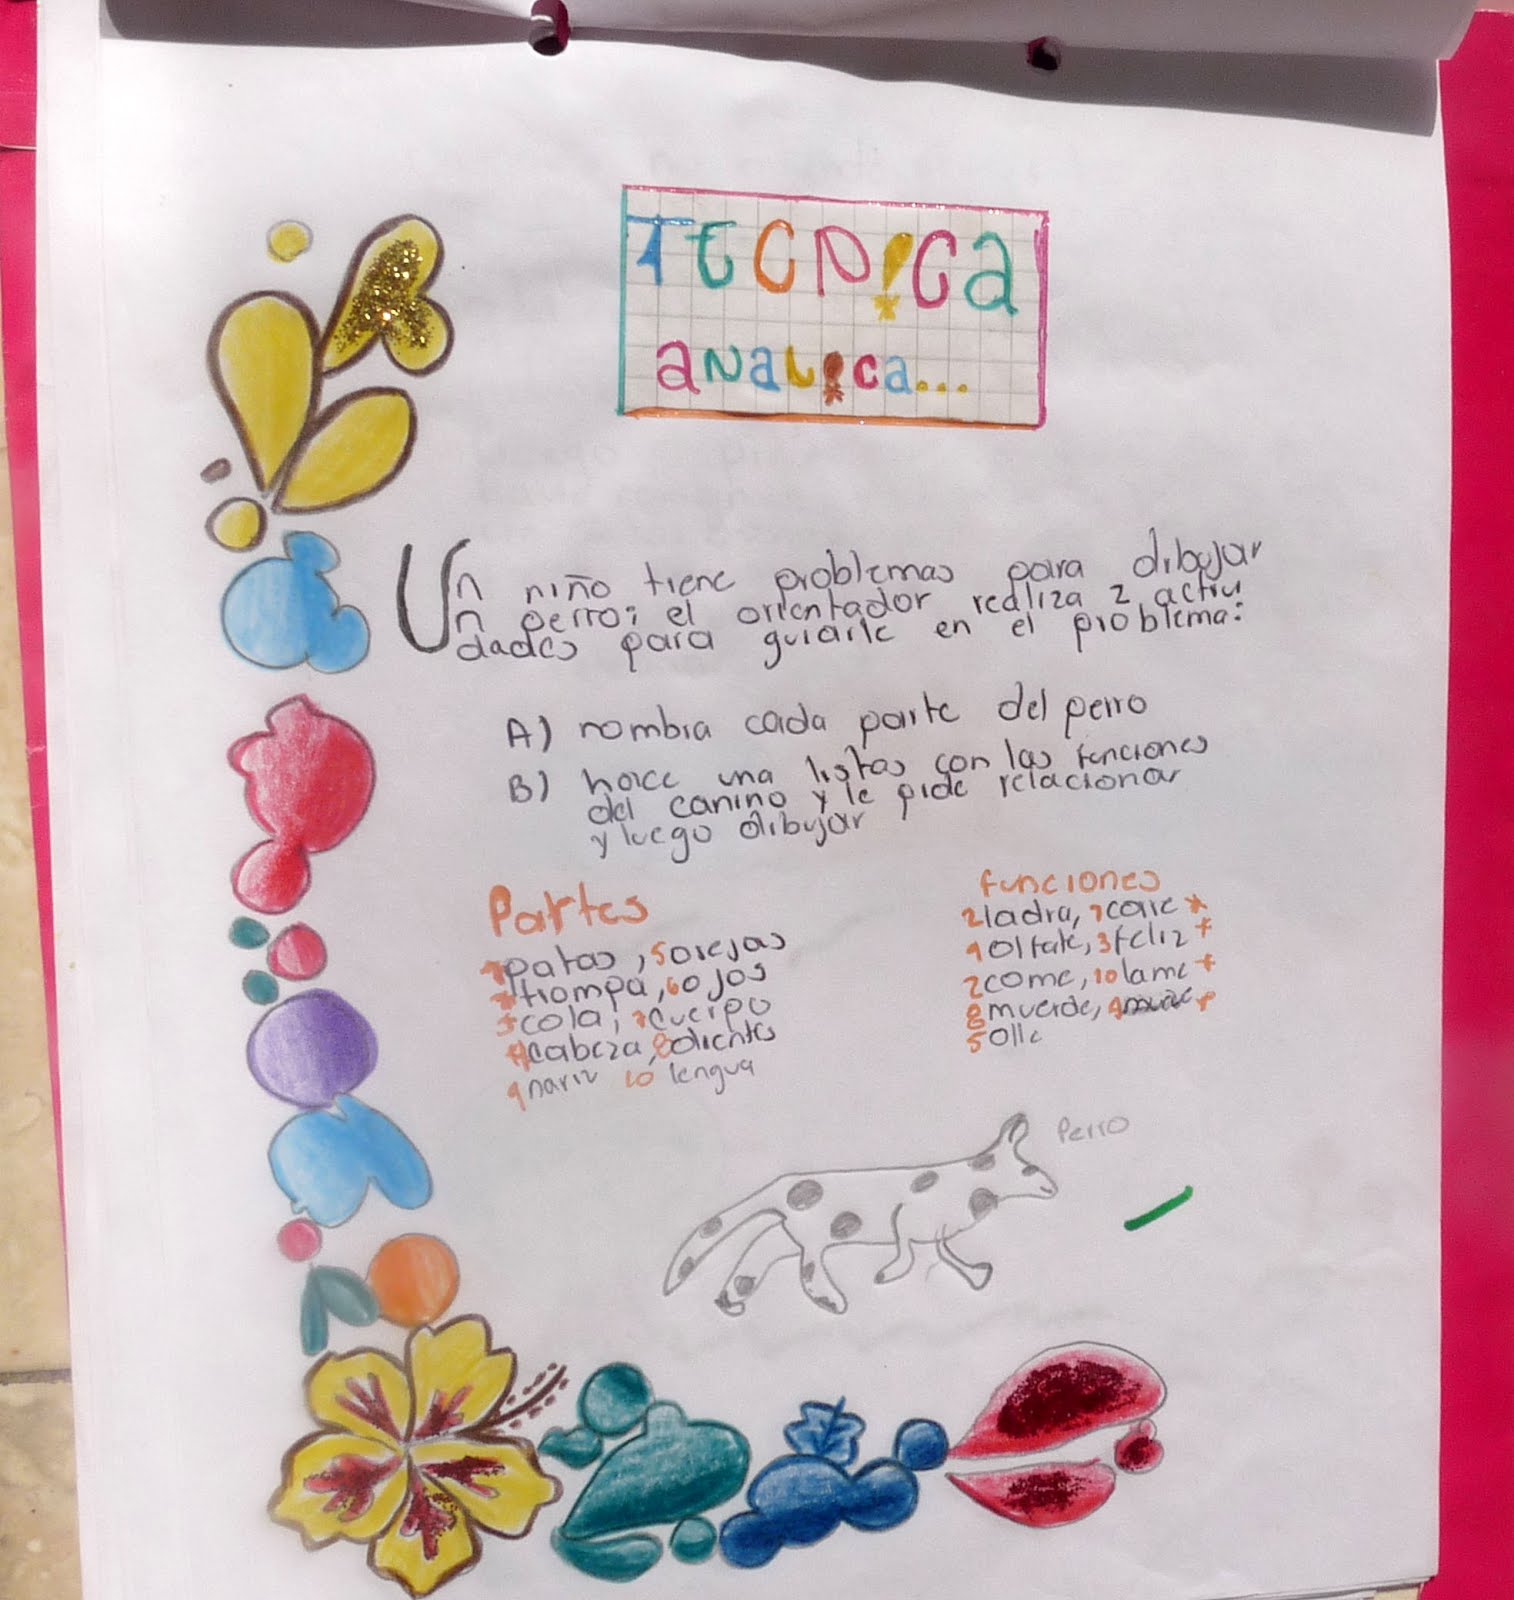 Tecnica
analica...
Un niño tiene problemas para dibujar
n perro; el orientador realiza 2 activi
dades para guiarle en el problema:
A) nombra cada parte del perro
B) hace una listas con las funciones
del canino y le pide relacionar
y luego dibujar
Partes
patas, 5 orejas
trompa, 6 ojos
3 cola, 7 cuerpo
4 cabeza, 8 dientes
9 nariz 10 lengua
funciones
2 ladra, 1 corre *
9 olfate, 3 feliz *
2 come, 10 lame *
8 muerde, 4
5 olle
Perro